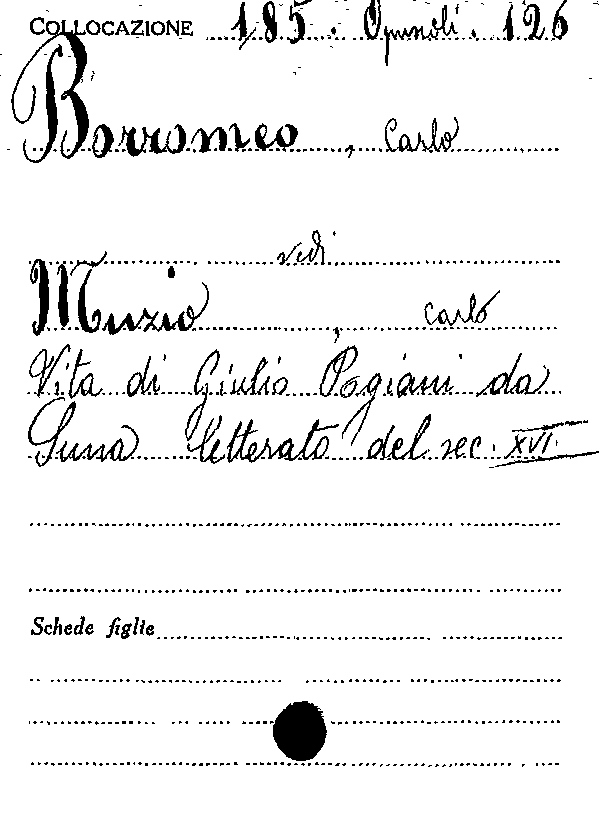 COLLOCAZIONE 185. Opuscoli. 126
Borromeo, Carlo
vedi
Muzio, Carlo
Vita di Giulio Pogiani da
Suna letterato del sec. XVI.
Schede figlie